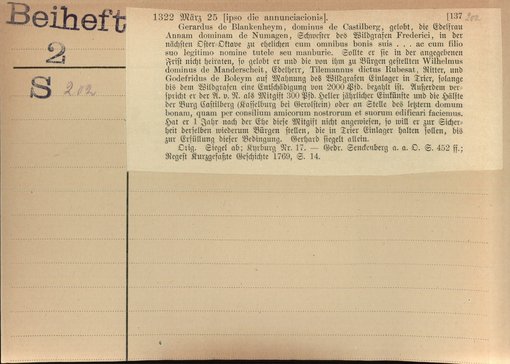 Beiheft
2
S 202
1322 März 25 [ipso die annunciscionis]. [137 202
Gerardus de Blankenheym, dominus de Castilberg, gelobt, die Edelfrau
Annam dominam de Numagen, Schwester des Wildgrafen Frederici, in der
nächsten Oster-Ottave zu ehelichen cum omnibus bonis suis . . . ac cum filio
suo legitimo nomine tutele seu manburie. Sollte er sie in der angegebenen
Frist nicht heiraten, so gelobt er und die von ihm zu Bürgen gestellten Wilhelmus
dominus de Manderscheit, Edelherr, Tilemannus dictus Rubesat, Ritter, und
Godefridus de Boleym auf Mahnung des Wildgrafen Einlager in Trier, solange
bis dem Wildgrafen eine Entschädigung von 2000 Pfd. bezahlt ist. Außerdem ver-
spricht er der A. v. N. als Mitgift 300 Pfd. Heller jährlicher Einkünfte und die Hälfte
der Burg Castilberg (Kasselburg bei Gerolstein) oder an Stelle des letztern domum
bonam, quam per consilium amicorum nostrorum et suorum edificari faciemus.
Hat er 1 Jahr nach der Ehe diese Mitgift nicht angewiesen, so will er zur Sicher-
heit derselben wiederum Bürgen stellen, die in Trier Einlager halten sollen, bis
zur Erfüllung dieser Bedingung. Gerhard siegelt allein.
Orig. Siegel ab; Kyrburg Nr. 17. — Gedr. Senckenberg a. a. O. S. 452 ff.;
Regest Kurzgefaßte Geschichte 1769, S. 14.